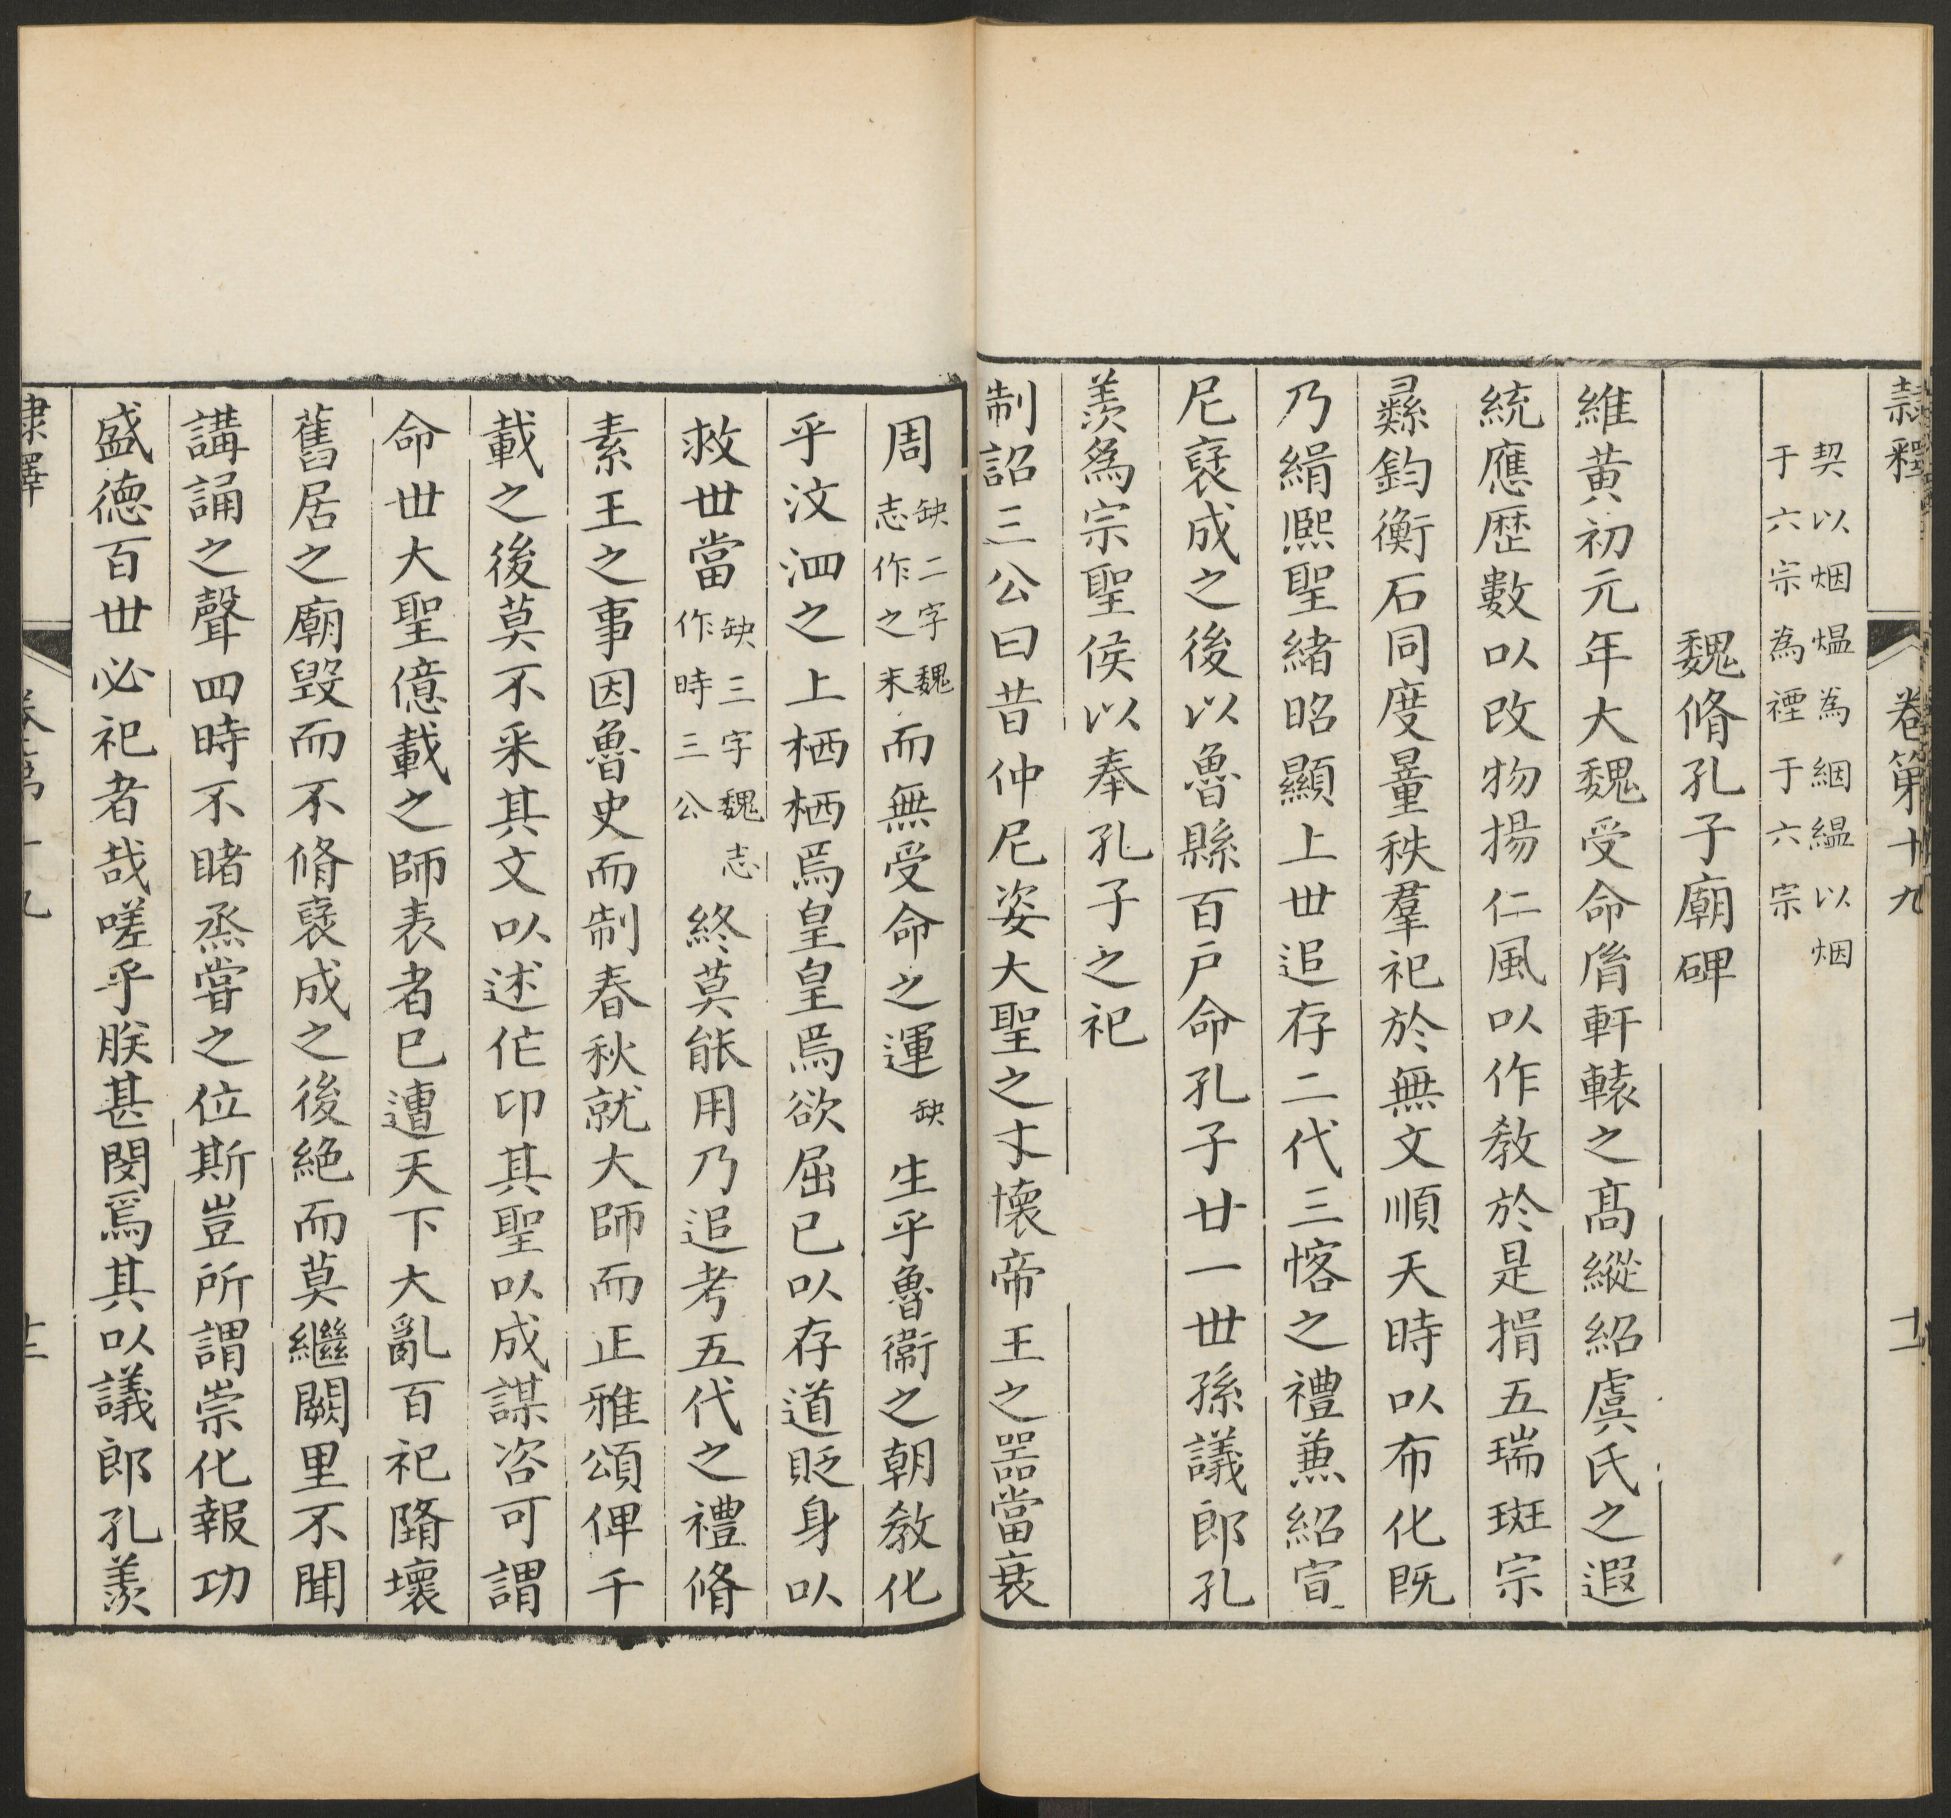 隷釋 卷第十九 十一
契以烟煴為絪緼以烟
于六宗為禋于六宗
魏脩孔子廟碑
維黃初元年大魏受命胥軒轅之高縱紹虞氏之遐
統應歷數以改物揚仁風以作教於是揖五瑞斑宗
彝鈞衡石同度量秩羣祀於無文順天時以布化既
乃緝熙聖緒昭顯上世追存二代三愙之禮兼紹宣
尼褒成之後以魯縣百戶命孔子廿一世孫議郎孔
羨為宗聖侯以奉孔子之祀
制詔三公曰昔仲尼姿大聖之才懷帝王之器當衰
周缺二字魏志作之末而無受命之運缺生乎魯衞之朝教化
乎汶泗之上栖栖焉皇皇焉欲屈己以存道貶身以
救世當缺三字魏志作時三公終莫能用乃追考五代之禮脩
素王之事因魯史而制春秋就大師而正雅頌俾千
載之後莫不采其文以述作卬其聖以成謀咨可謂
命世大聖億載之師表者已遭天下大亂百祀隳壞
舊居之廟毀而不脩褒成之後絕而莫繼闕里不聞
講誦之聲四時不睹烝嘗之位斯豈所謂崇化報功
盛德百世必祀者哉嗟乎朕甚閔焉其以議郎孔羨